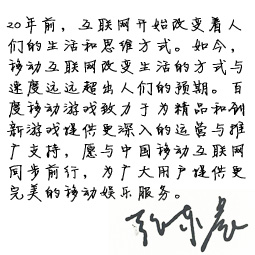 20年前，互联网开始改变着人
们的生活和思维方式。如今，
移动互联网改变生活的方式与
速度远远超出人们的预期。百
度移动游戏致力于为精品和创
新游戏提供更深入的运营与推
广支持，愿与中国移动互联网
同步前行，为广大用户提供更
完美的移动娱乐服务。